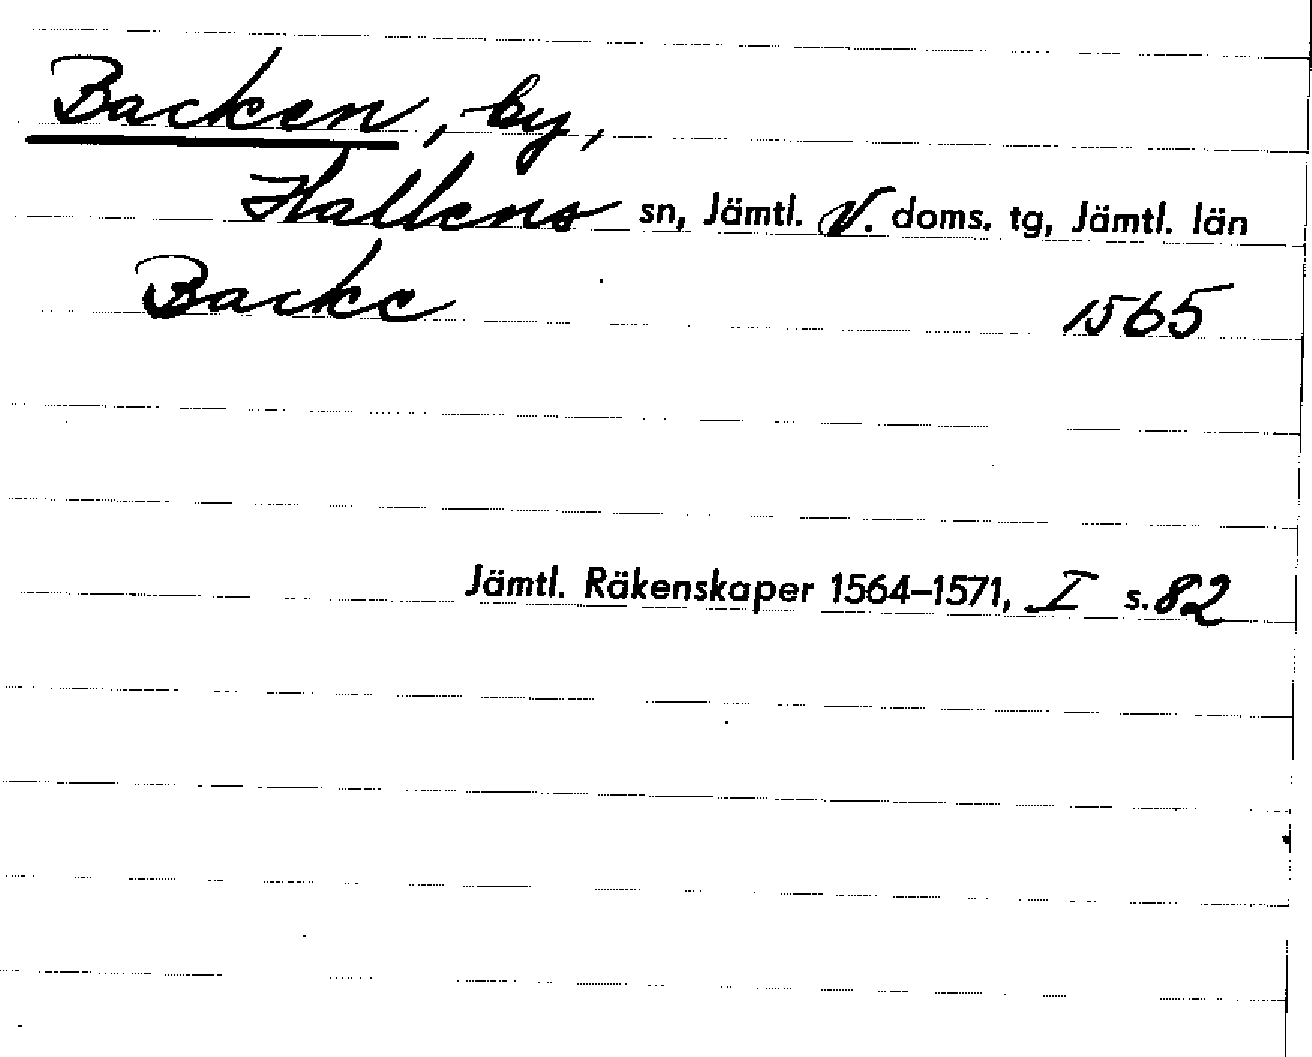 Backen, by,
Hallens sn, Jämtl. V. doms. tg, Jämtl. län
Backe 1565
Jämtl. Räkenskaper 1564–1571, I s. 82